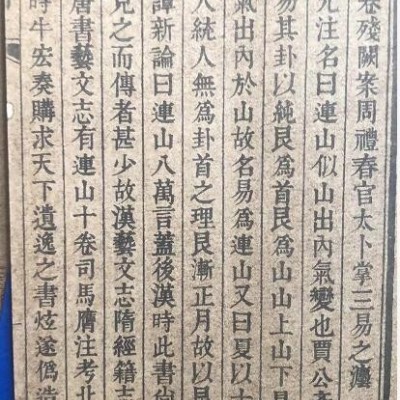 卷殘闕案周禮春官太卜掌三易之灋
元注名曰連山似山出內氣變也賈公彥
易其卦以純艮為首艮為山山上山下是
氣出內於山故名易為連山又曰夏以十
人統人無為卦首之理艮漸正月故以艮
譚新論曰連山八萬言蓋後漢時此書尚
見之而傳者甚少故漢藝文志隋經籍志
唐書藝文志有連山十卷司馬膺注考北
時牛宏奏購求天下遺逸之書炫遂偽造